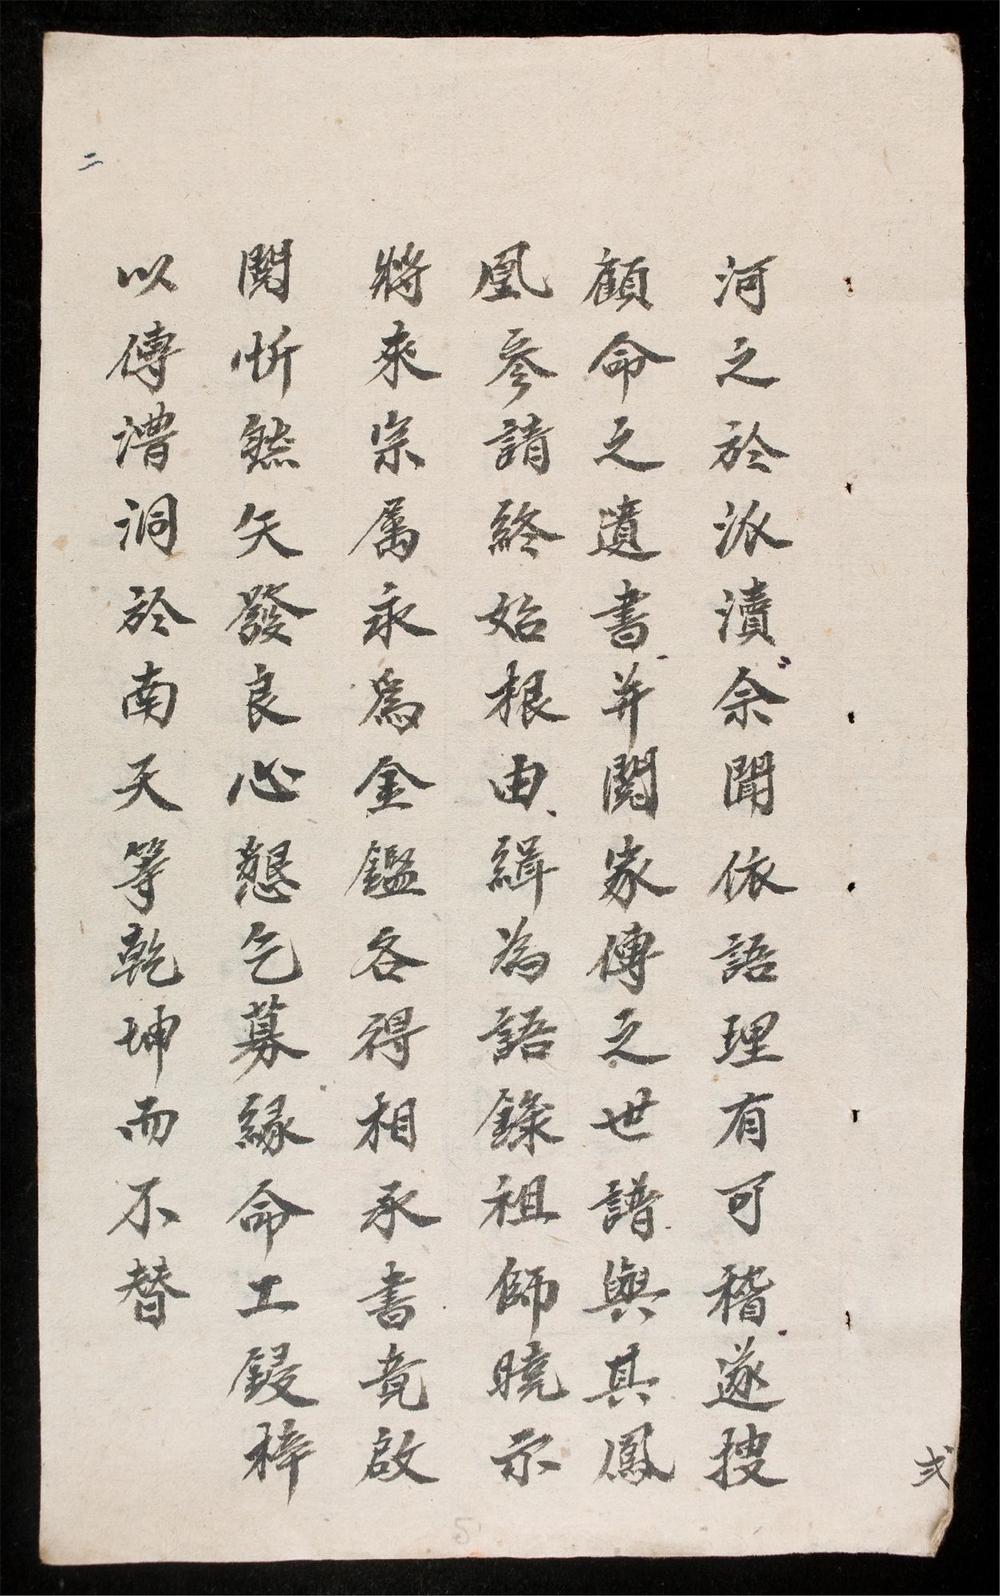 二
河之於派瀆余聞依語理有可稽遂搜
顧命之遺書并閱家傳之世譜與其鳳
凰參請終始根由緝為語錄祖師曉示
將來宗属永爲金鑑各得相承書竟啟
閱忻然矢發良心懇乞募緣命工鋟梓
以傳漕洞於南天等乾坤而不替
弍
5